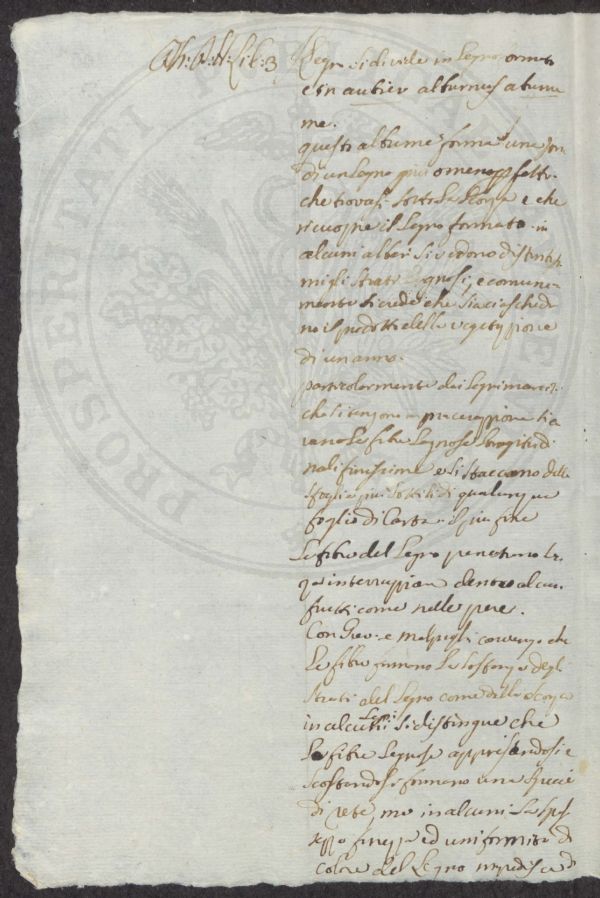 Lib: 3
Legno si divide in Legno formato
e in aubier alburnus alburno
me.
questi albume forma una
di un Legno più o meno perfetto
che trovasi sotto la Scorza e che
ricuopre il Legno formato. in
alcuni alberi si vedono distinti
migli strati Legnosi, e comune
mente si crede che siaciaschedu
no il prodotto della vegetazione
di un anno.
particolarmente dai Legni
che si tengono in macerazione si
vano Le fibre Legnose Longitudi
nali finissime e si staccano delle
sfoglie più sottili di qualunque
foglio di Carta il più fine
Le fibre del Legno penetrano
interruzion dentro alcuni
frutti come nelle pere.
Con Grev e malpigli convengo che
Le fibre formano La sostanza degli
Strati del Legno come della Scorza
in alcuni Legni si distingue che
Le fibre Legnose appressandosi e
Scostandosi formano una Specie
di rete, ma in alcuni La
finezza ed uniformita di
Colore del Legno impedisce di
PROSPERITATI